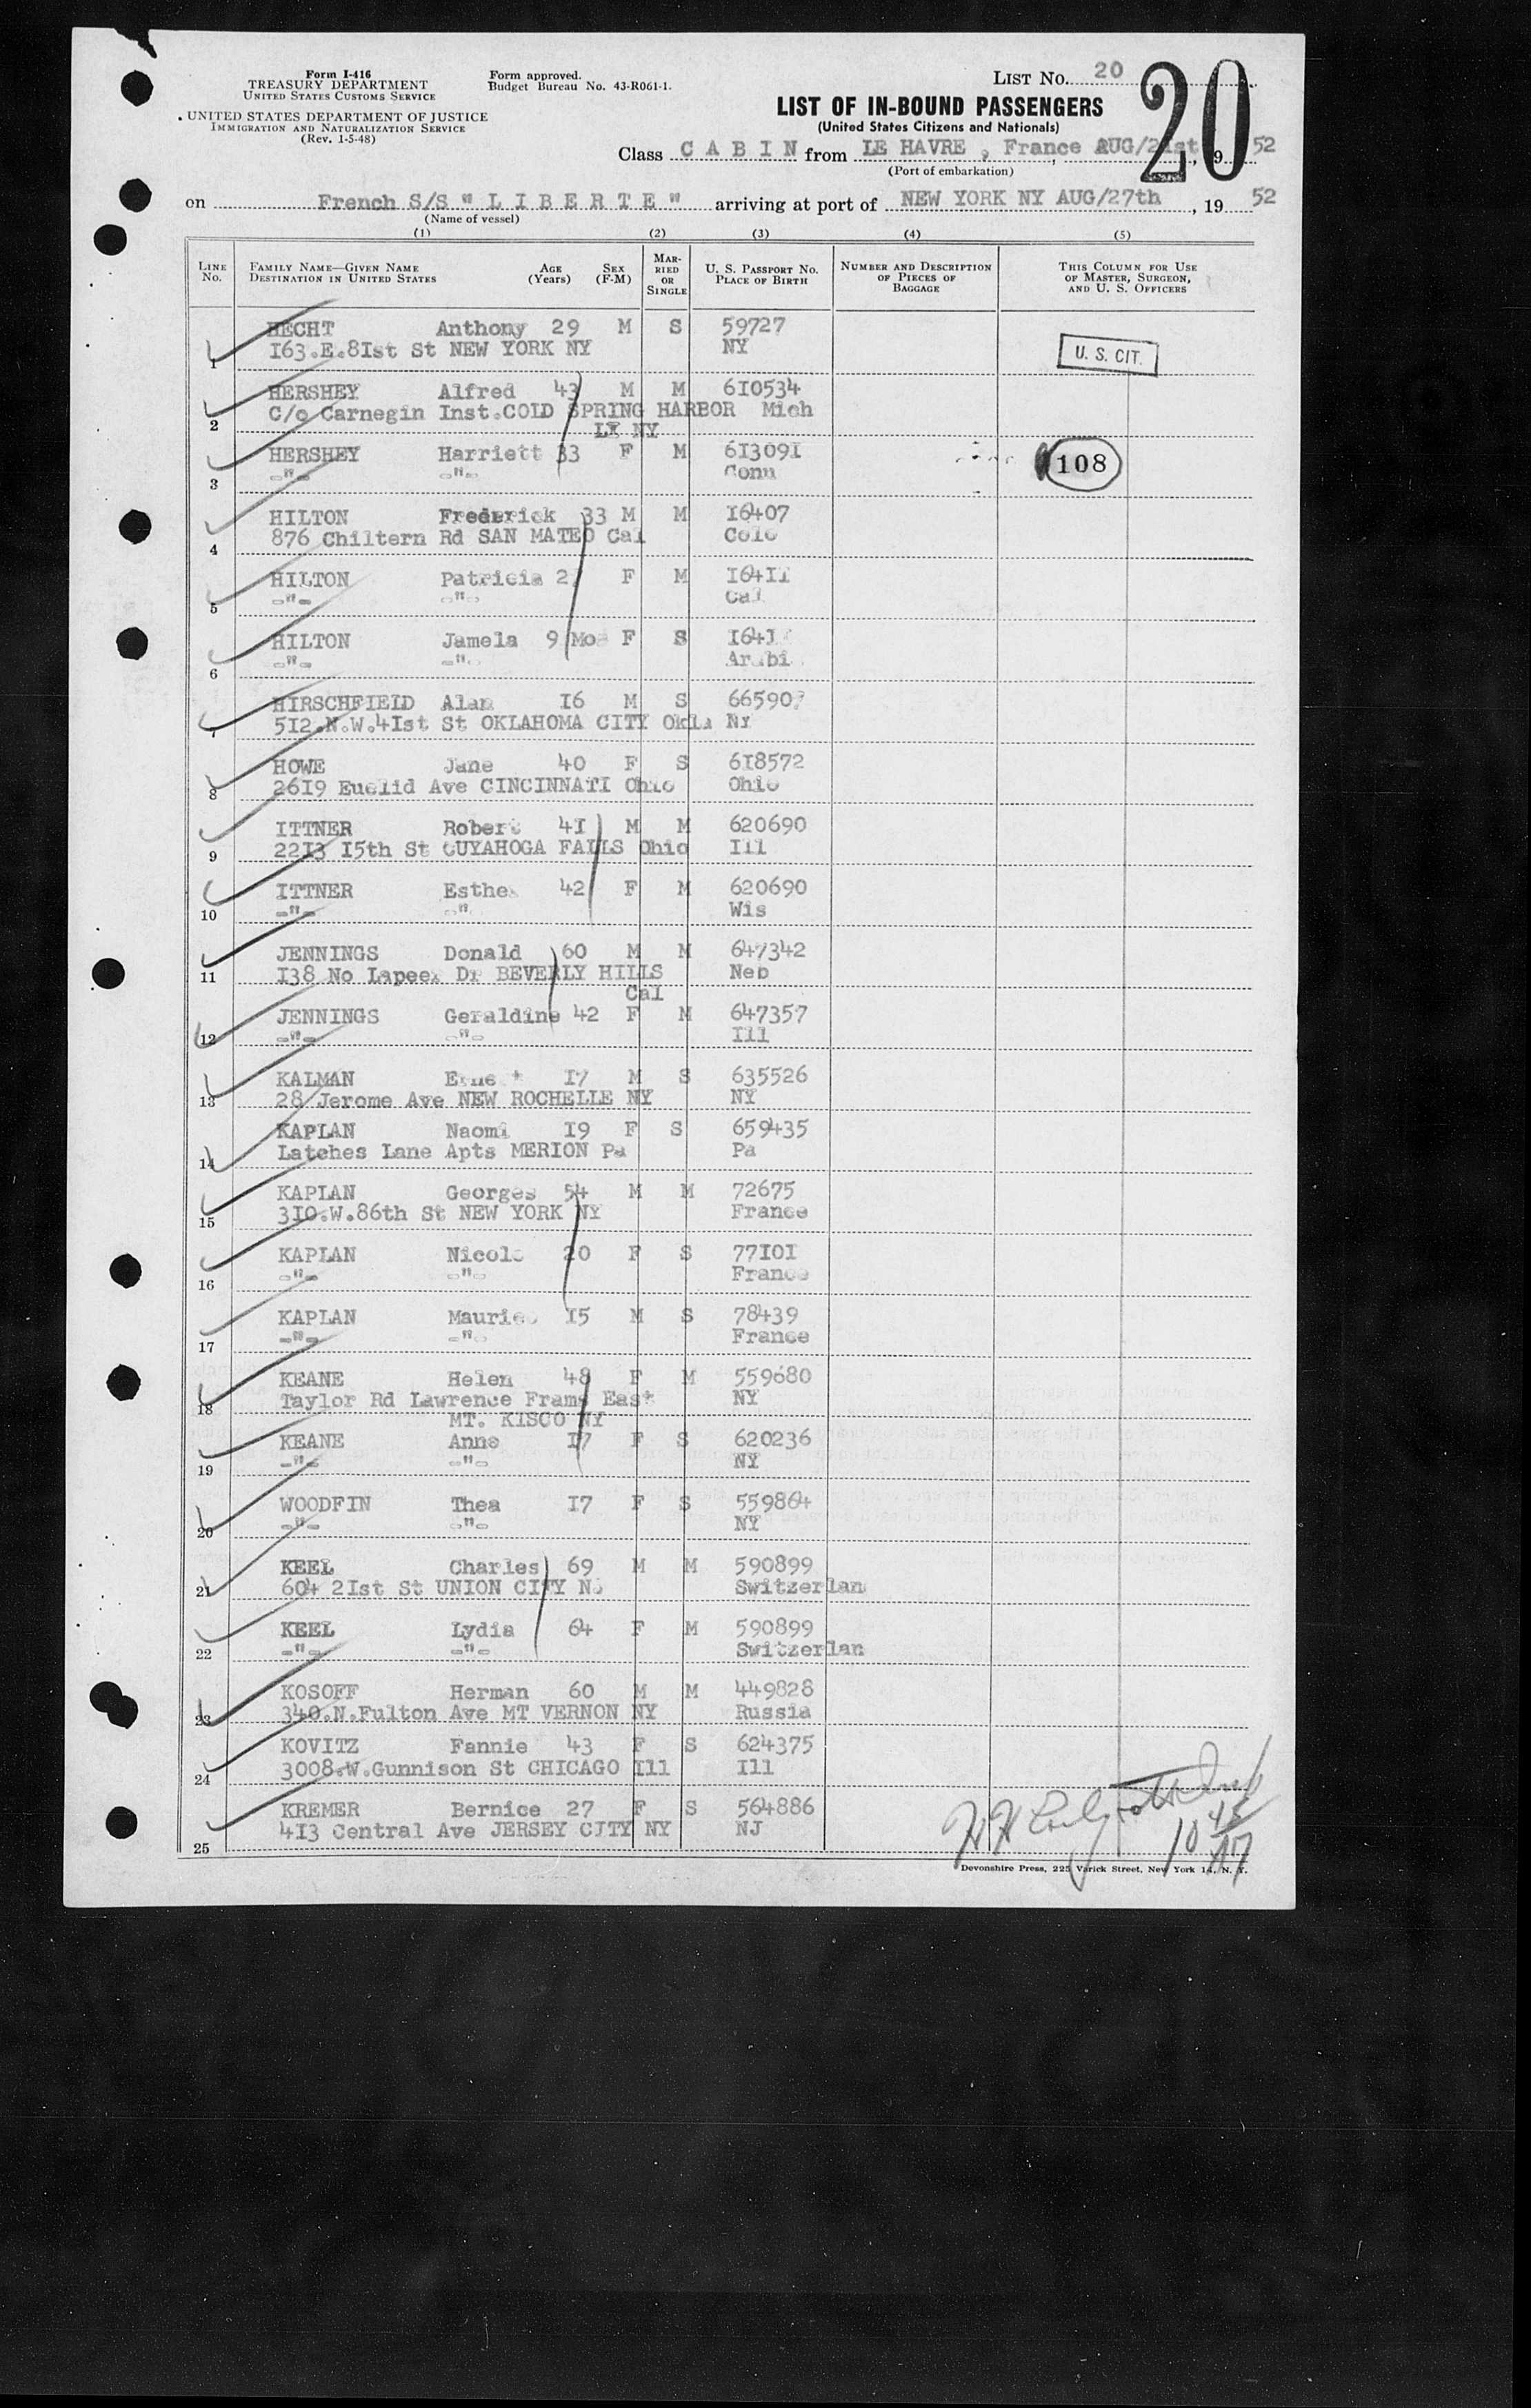 Form I-416
TREASURY DEPARTMENT
UNITED STATES CUSTOMS SERVICE
UNITED STATES DEPARTMENT OF JUSTICE
IMMIGRATION AND NATURALIZATION SERVICE
(Rev. 1-5-48)
Form approved.
Budget Bureau No. 43-R061-1.
LIST No. 20
20
LIST OF IN-BOUND PASSENGERS
(United States Citizens and Nationals)
Class C A B I N from LE HAVRE , France AUG/21st, 19 52
(Port of embarkation)
on French S/S " L I B E R T E " arriving at port of NEW YORK NY AUG/27th, 19 52
(Name of vessel)
(1) (2) (3) (4) (5)
LINE No. FAMILY NAME—GIVEN NAME DESTINATION IN UNITED STATES AGE (Years) SEX (F-M) MARRIED OR SINGLE U. S. PASSPORT No. PLACE OF BIRTH NUMBER AND DESCRIPTION OF PIECES OF BAGGAGE THIS COLUMN FOR USE OF MASTER, SURGEON, AND U. S. OFFICERS
HECHT Anthony 29 M S 59727
1 I63.E.8Ist St NEW YORK NY NY
U. S. CIT.
HERSHEY Alfred 43 M M 6I0534
2 C/o Carnegin Inst.COLD SPRING HARBOR Mich
LI NY
HERSHEY Harriett 33 F M 6I309I
3 -"- -"- Conn
108
HILTON Frederick 33 M M I6407
4 876 Chiltern Rd SAN MATEO Cal Colo
HILTON Patricia F M I64II
5 -"- -"- Cal
HILTON Jamela 9 Mos F S
6 -"- -"-
HIRSCHFIELD Alan I6 M S
7 5I2.N.W.4Ist St OKLAHOMA CITY Okla NY
HOWE Jane 40 F S 6I8572
8 26I9 Euclid Ave CINCINNATI Ohio Ohio
ITTNER Robert 4I M M 620690
9 22I3 I5th St CUYAHOGA FALLS Ohio Ill
ITTNER Esther 42 F M 620690
10 -"- -"- Wis
JENNINGS Donald 60 M M 647342
11 I38 No Lapeer Dr BEVERLY HILLS Neb
Cal
JENNINGS Geraldine 42 F M 647357
12 -"- -"- Ill
KALMAN Ernest I7 M S 635526
13 28 Jerome Ave NEW ROCHELLE NY NY
KAPLAN Naomi I9 F S 659435
14 Latches Lane Apts MERION Pa Pa
KAPLAN Georges 54 M M 72675
15 3I0.W.86th St NEW YORK NY France
KAPLAN Nicole 20 F S 77I0I
16 -"- -"- France
KAPLAN Maurice I5 M S 78439
17 -"- -"- France
KEANE Helen 48 F M 559680
18 Taylor Rd Lawrence Frams East NY
MT. KISCO NY
KEANE Anne I7 F S 620236
19 -"- -"- NY
WOODFIN Thea I7 F S 559864
20 -"- -"- NY
KEEL Charles 69 M M 590899
21 604 2Ist St UNION CITY NJ Switzerlan
KEEL Lydia 64 F M 590899
22 -"- -"- Switzerlan
KOSOFF Herman 60 M M 449828
23 340.N.Fulton Ave MT VERNON NY Russia
KOVITZ Fannie 43 F S 624375
24 3008.W.Gunnison St CHICAGO Ill Ill
KREMER Bernice 27 F S 564886
25 4I3 Central Ave JERSEY CITY NY NJ
Devonshire Press, 225 Varick Street, New York 14, N. Y.